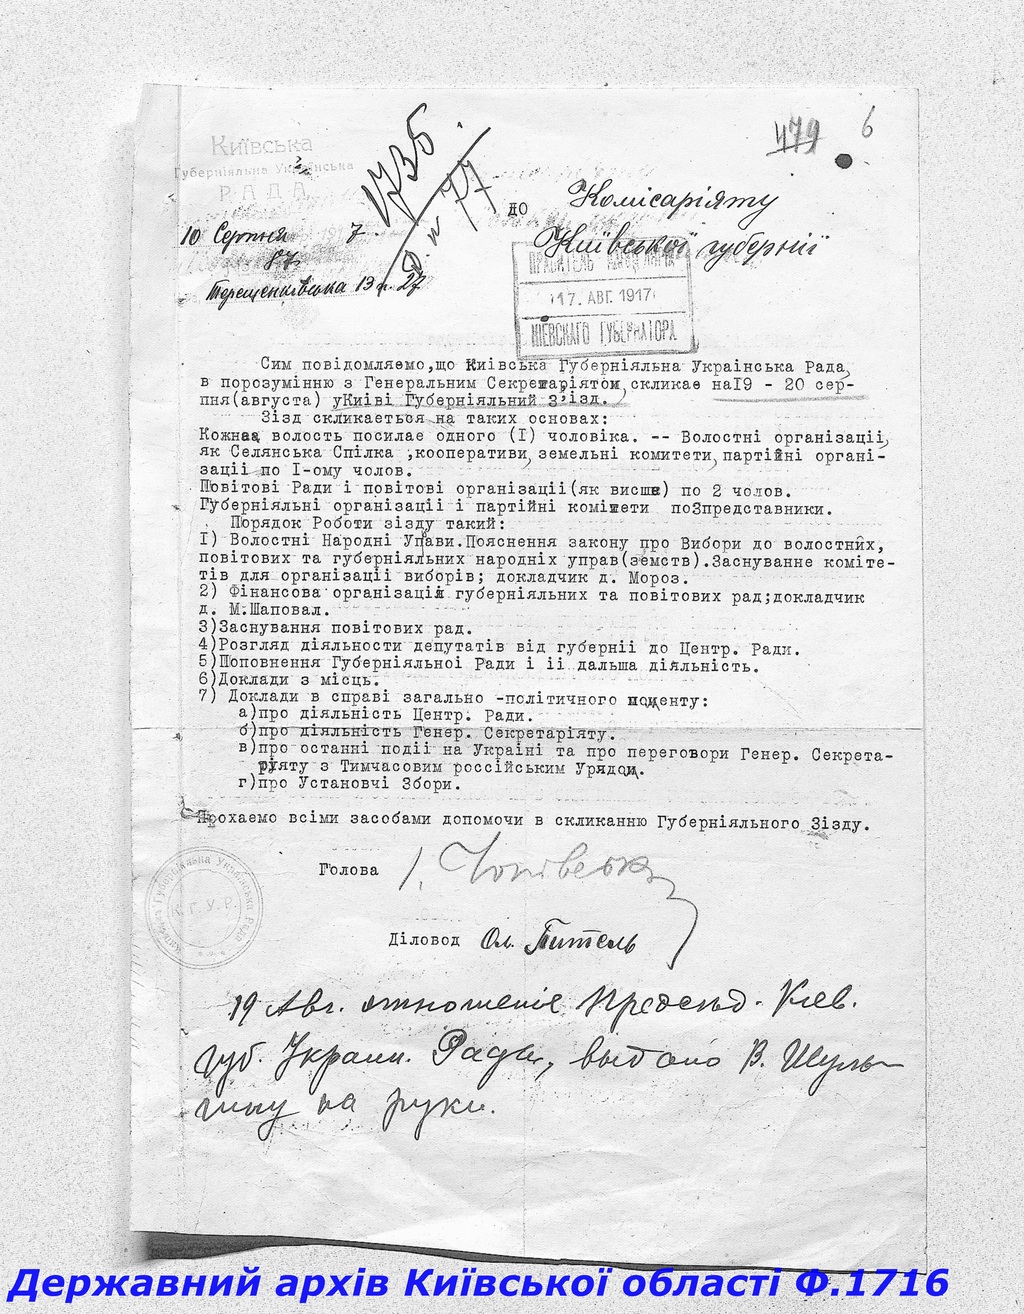 479 6
Київська
Губерніяльна Українська
РАДА
1735
10 Серпня 7
87
Терещенківська 13 п. 27
до Комісаріяту
Київської губернії
ПРАВИТЕЛЬ КАНЦЕЛЯРІИ
17. АВГ. 1917
КІЕВСКАГО ГУБЕРНАТОРА
Сим повідомляемо,що Киівська Губерніяльна Украінська Рада,
в порозумінню з Генеральним Секретаріятом, скликае на I9 - 20 сер-
пня(августа) уКиіві Губерніяльний З'ізд.
Зізд скликається на таких основах:
Кожная волость посилае одного (I) чоловіка. -- Волостні організаціі,
як Селянська Спілка ,кооперативи, земельні комитети, партійні органі-
заціі по I-ому чолов.
Повітові Ради і повітові організаціі(як висше) по 2 чолов.
Губерніяльні організаціі і партійні комітети по3представники.
Порядок Роботи зізду такий:
I) Волостні Народні Управи.Пояснення закону про Вибори до волостних,
повітових та губерніяльних народніх управ(земств).Заснуванне коміте-
тів для організаціі виборів; докладчик д. Мороз.
2) Фінансова організація губерніяльних та повітових рад;докладчик
д. М.Шаповал.
3)Заснування повітових рад.
4)Розгляд діяльности депутатів від губерніі до Центр. Ради.
5)Поповнення Губерніяльноі Ради і іі дальша діяльність.
6)Доклади з місць.
7) Доклади в справі загально -політичного моменту:
а)про діяльність Центр. Ради.
б)про діяльність Генер. Секретаріяту.
в)про останні подіі на Украіні та про переговори Генер. Секрета-
ріяту з Тимчасовим російським Урядом.
г)про Установчі Збори.
Прохаемо всіми засобами допомочи в скликанню Губерніяльного Зізду.
Голова І. Чопівськ
Київська Губерніяльна Українська Рада
К.Г.У.Р.
Діловод Ол. Питель
19 Авг. отношеніе Предсѣд. Кіев.
губ. Украин. Рады, выдано В. Шуль-
гину на руки.
Державний архів Київської області Ф.1716